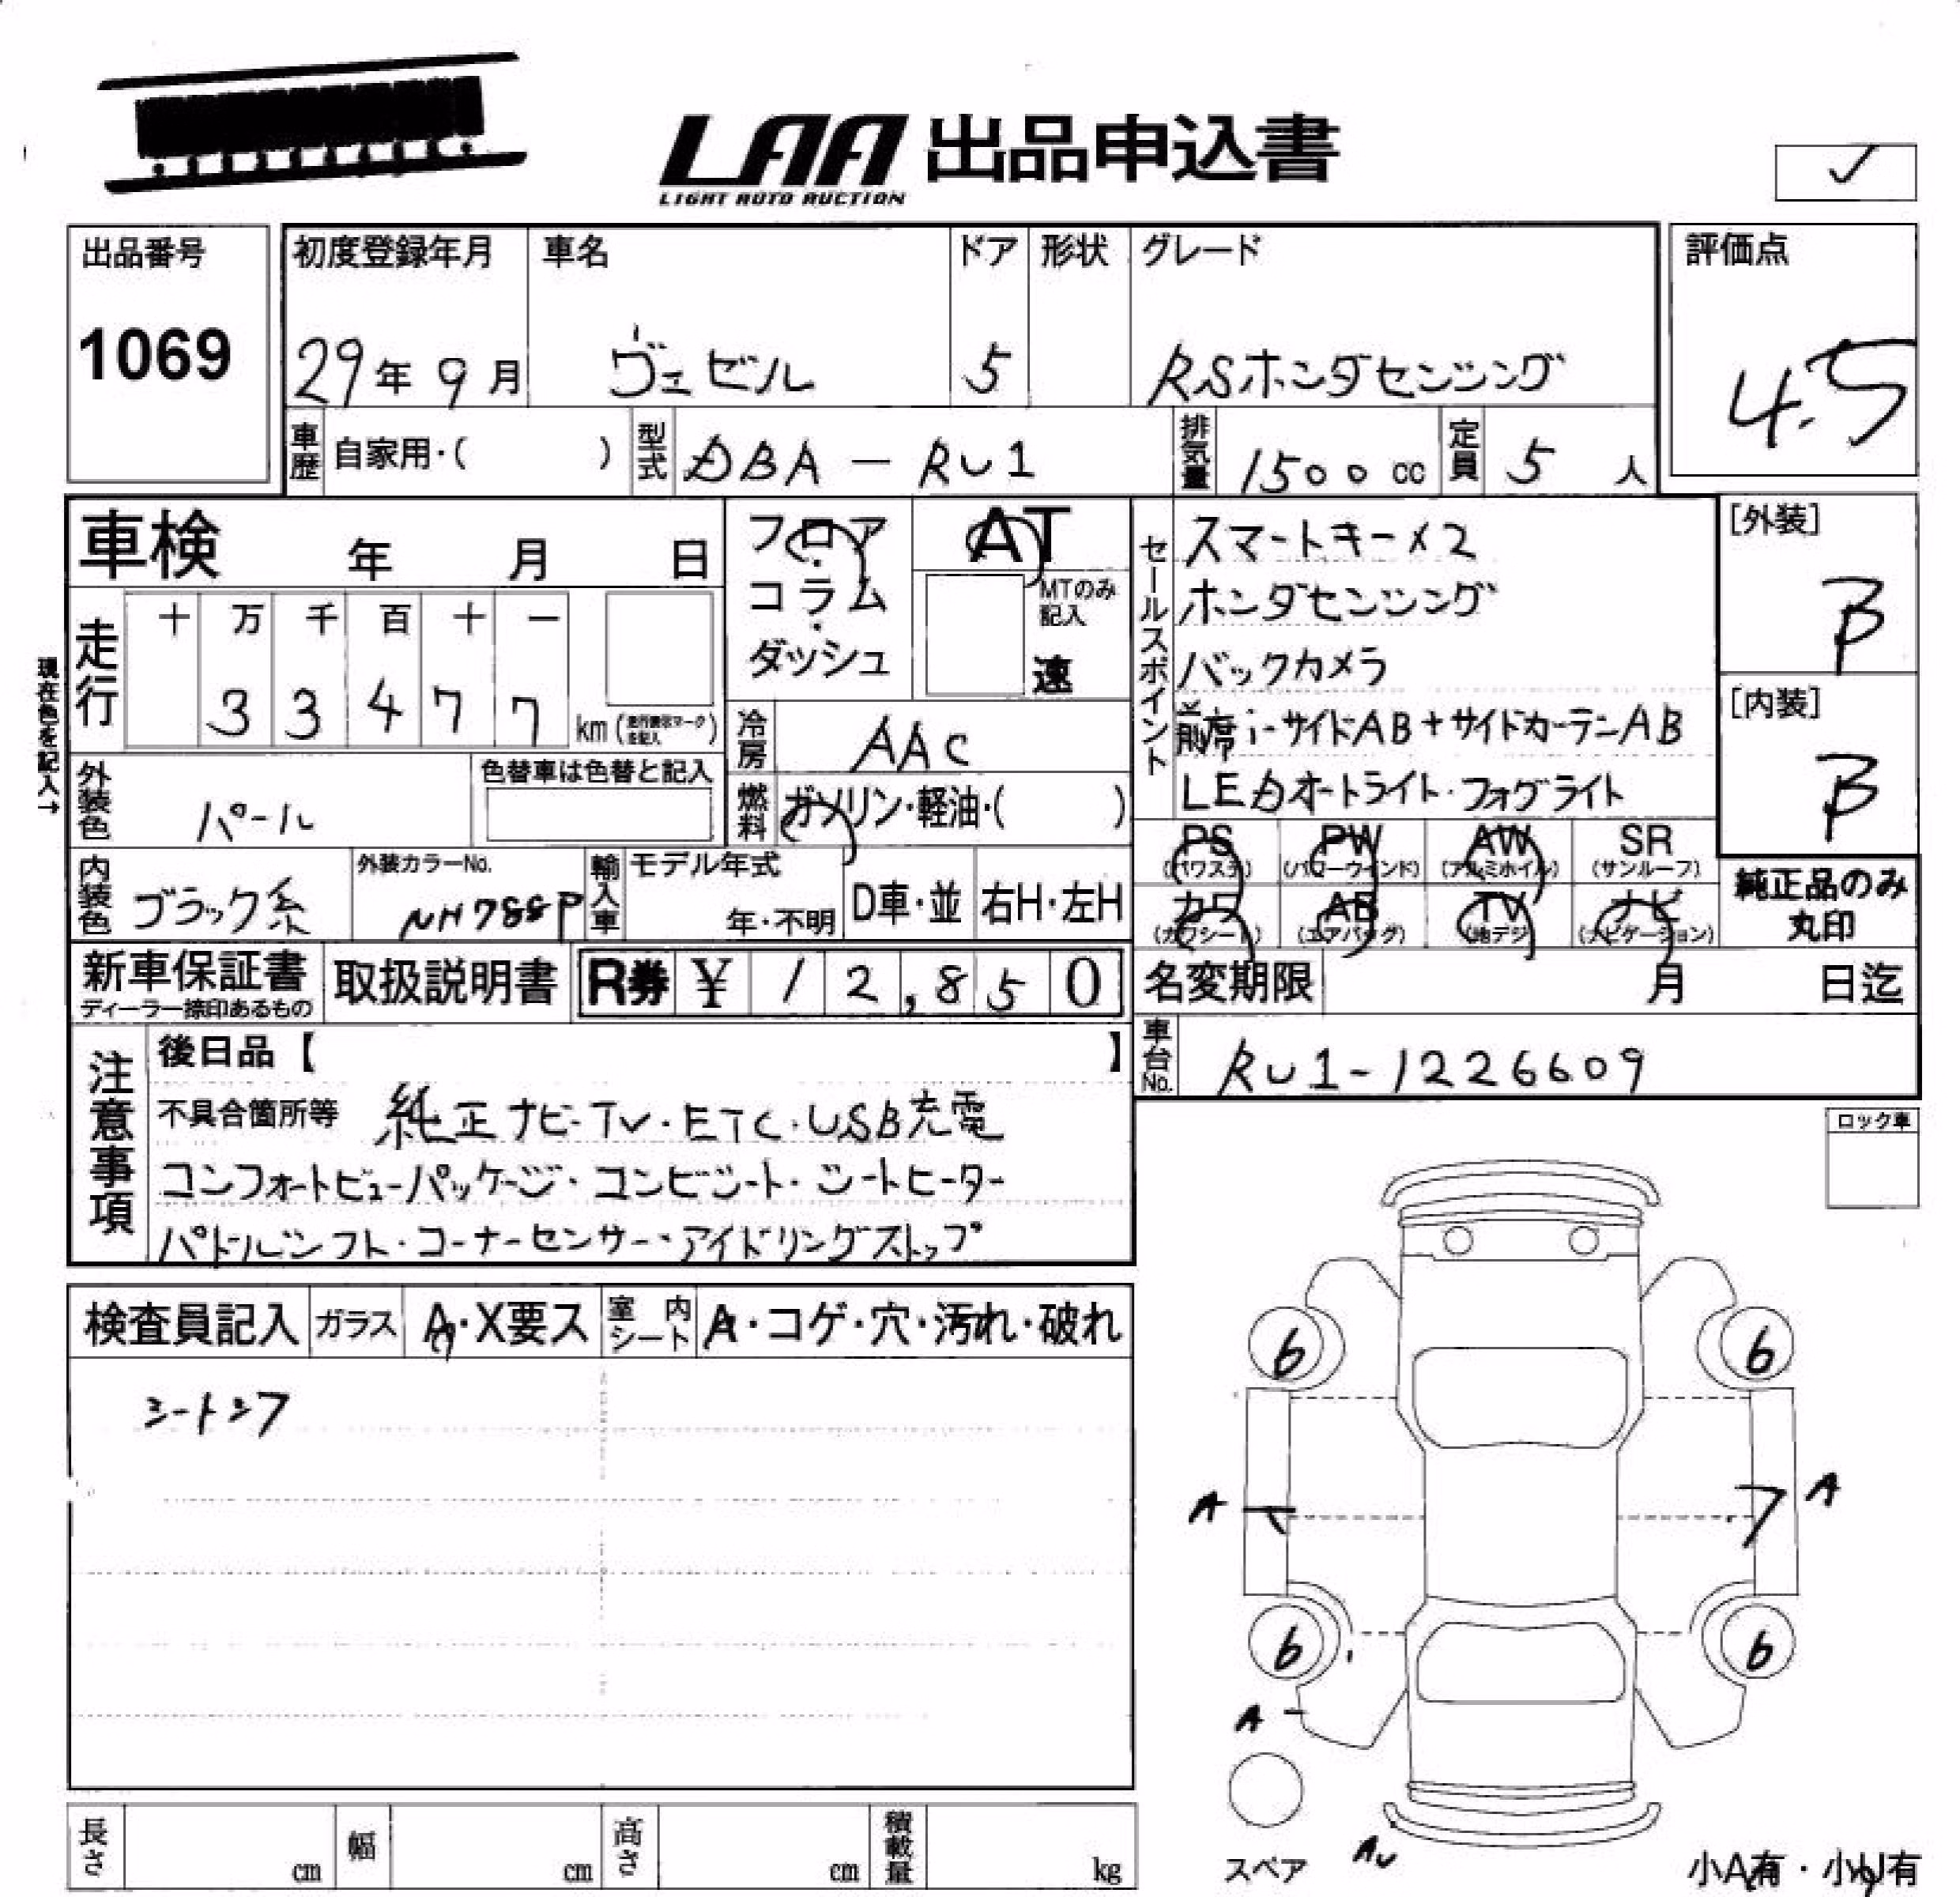 LAA 出品申込書
LIGHT AUTO AUCTION
出品番号
1069
初度登録年月
29年 9月
車名
ヴェゼル
ドア
5
形状
グレード
RSホンダセンシング
評価点
4.5
車歴 自家用・( )
型式 DBA-RU1
排気量 1500cc
定員 5人
車検 年 月 日
フロア・コラム・ダッシュ
AT
MTのみ記入
速
走行
十 万 千 百 十 一
3 3 4 7 7
km(走行表示マークを記入)
現在色を記入→
冷房 AAC
燃料 ガソリン・軽油・( )
外装色 パール
色替車は色替と記入
内装色 ブラック系
外装カラーNo.
NH788P
輸入車 モデル年式
年・不明
D車・並
右H・左H
セールスポイント
スマートキー×2
ホンダセンシング
バックカメラ
前席i-サイドAB+サイドカーテンAB
LEDオートライト・フォグライト
[外装]
B
[内装]
B
PS (パワステ)
PW (パワーウインド)
AW (アルミホイル)
SR (サンルーフ)
カワ (カワシート)
AB (エアバッグ)
TV (地デジ)
ナビ (ナビゲーション)
純正品のみ丸印
新車保証書
ディーラー捺印あるもの
取扱説明書
R券 ¥ 12,850
名変期限 月 日迄
車台No. RU1-1226609
注意事項
後日品【 】
不具合箇所等 純正ナビ・TV・ETC・USB充電
コンフォートビューパッケージ・コンビシート・シートヒーター
パドルシフト・コーナーセンサー・アイドリングストップ
ロック車
検査員記入
ガラス A・X要ス
室内シート A・コゲ・穴・汚れ・破れ
シートシワ
6 6
A A
6 6
A
スペア
AU
小A有・小U有
長さ cm
幅 cm
高さ cm
積載量 kg